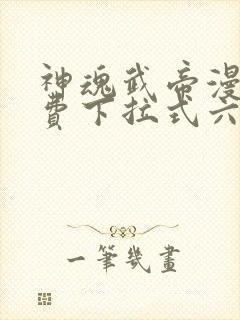 神魂武帝漫
費下拉式六
一筆幾畫